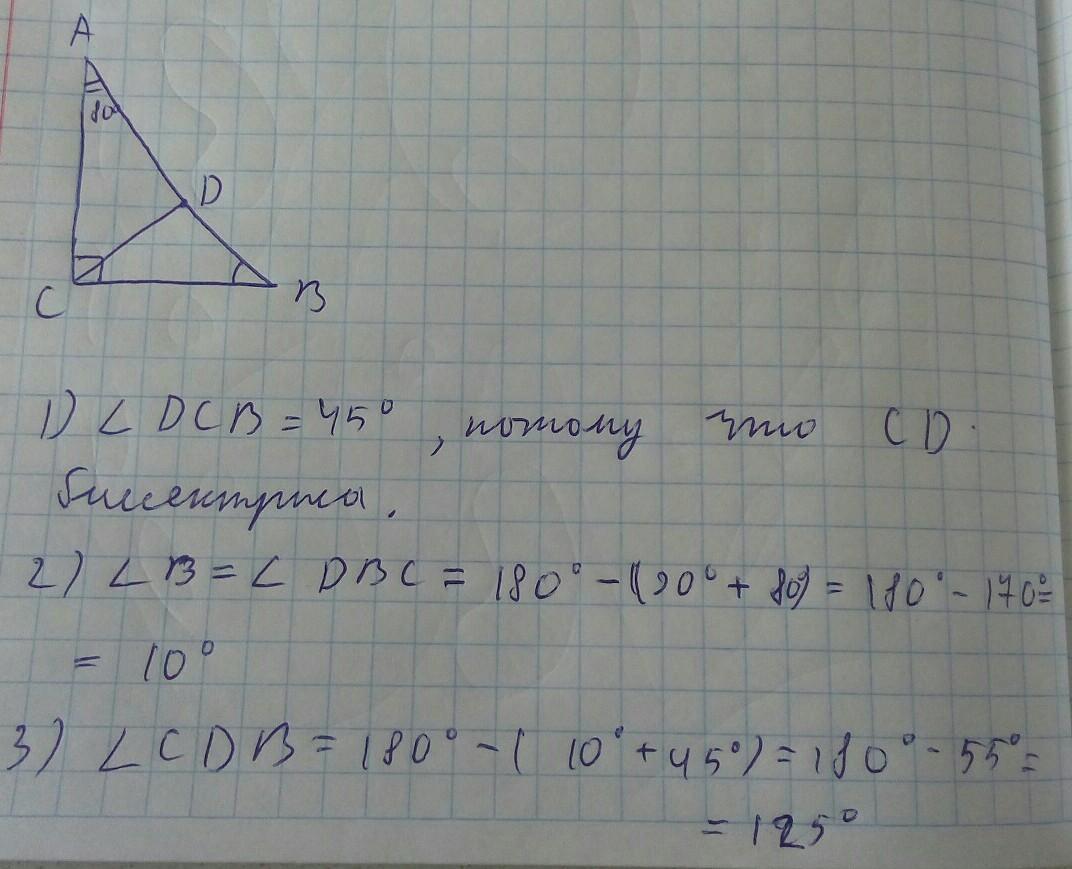 A
80
D
C
B
1) ∠ DCB = 45° , потому что CD
биссектриса.
2) ∠ B = ∠ DBC = 180° - (90° + 80) = 180° - 170° =
= 10°
3) ∠ CDB = 180° - ( 10° + 45°) = 180° - 55° =
= 125°